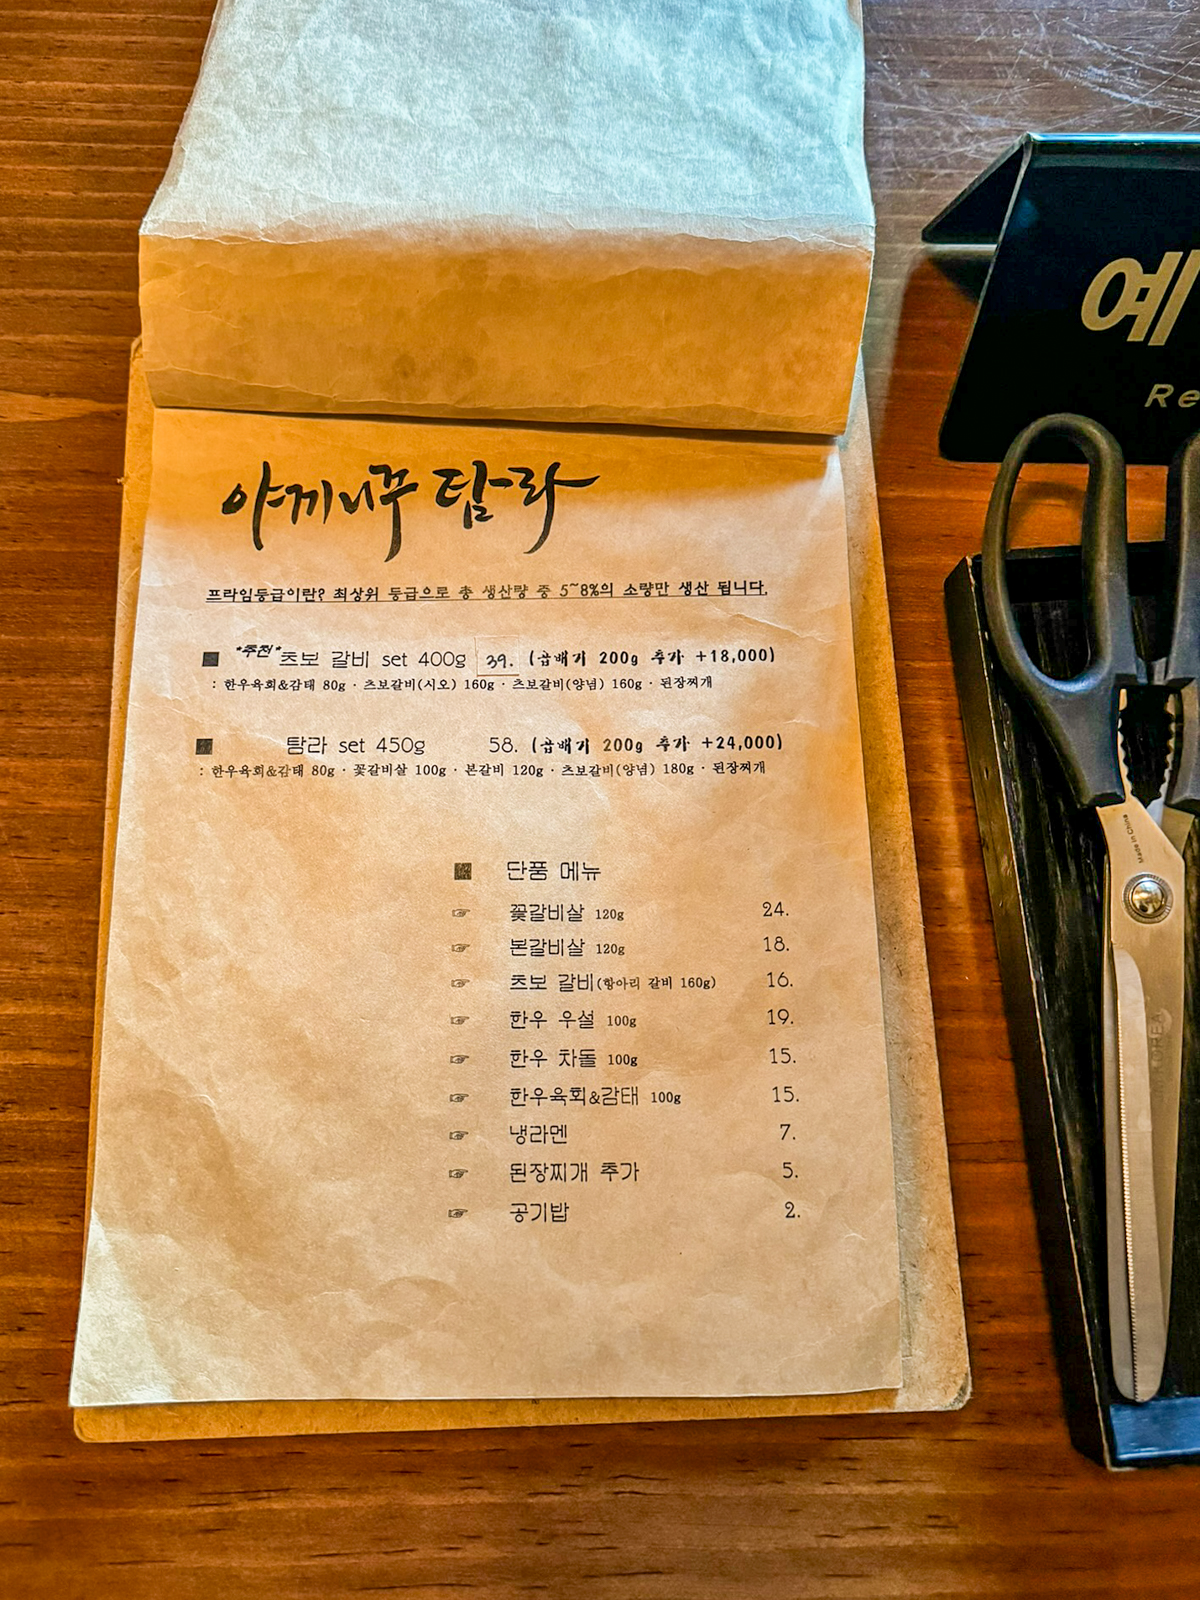 야끼니꾸 탐라
프라임등급이란? 최상위 등급으로 총 생산량 중 5~8%의 소량만 생산 됩니다.
■ *추천* 츠보 갈비 set 400g 39. (곱배기 200g 추가 +18,000)
: 한우육회&감태 80g · 츠보갈비(시오) 160g · 츠보갈비(양념) 160g · 된장찌개
■ 탐라 set 450g 58. (곱배기 200g 추가 +24,000)
: 한우육회&감태 80g · 꽃갈비살 100g · 본갈비 120g · 츠보갈비(양념) 180g · 된장찌개
■ 단품 메뉴
☞ 꽃갈비살 120g 24.
☞ 본갈비살 120g 18.
☞ 츠보 갈비(항아리 갈비 160g) 16.
☞ 한우 우설 100g 19.
☞ 한우 차돌 100g 15.
☞ 한우육회&감태 100g 15.
☞ 냉라멘 7.
☞ 된장찌개 추가 5.
☞ 공기밥 2.
예
Re
Made in China
KOREA